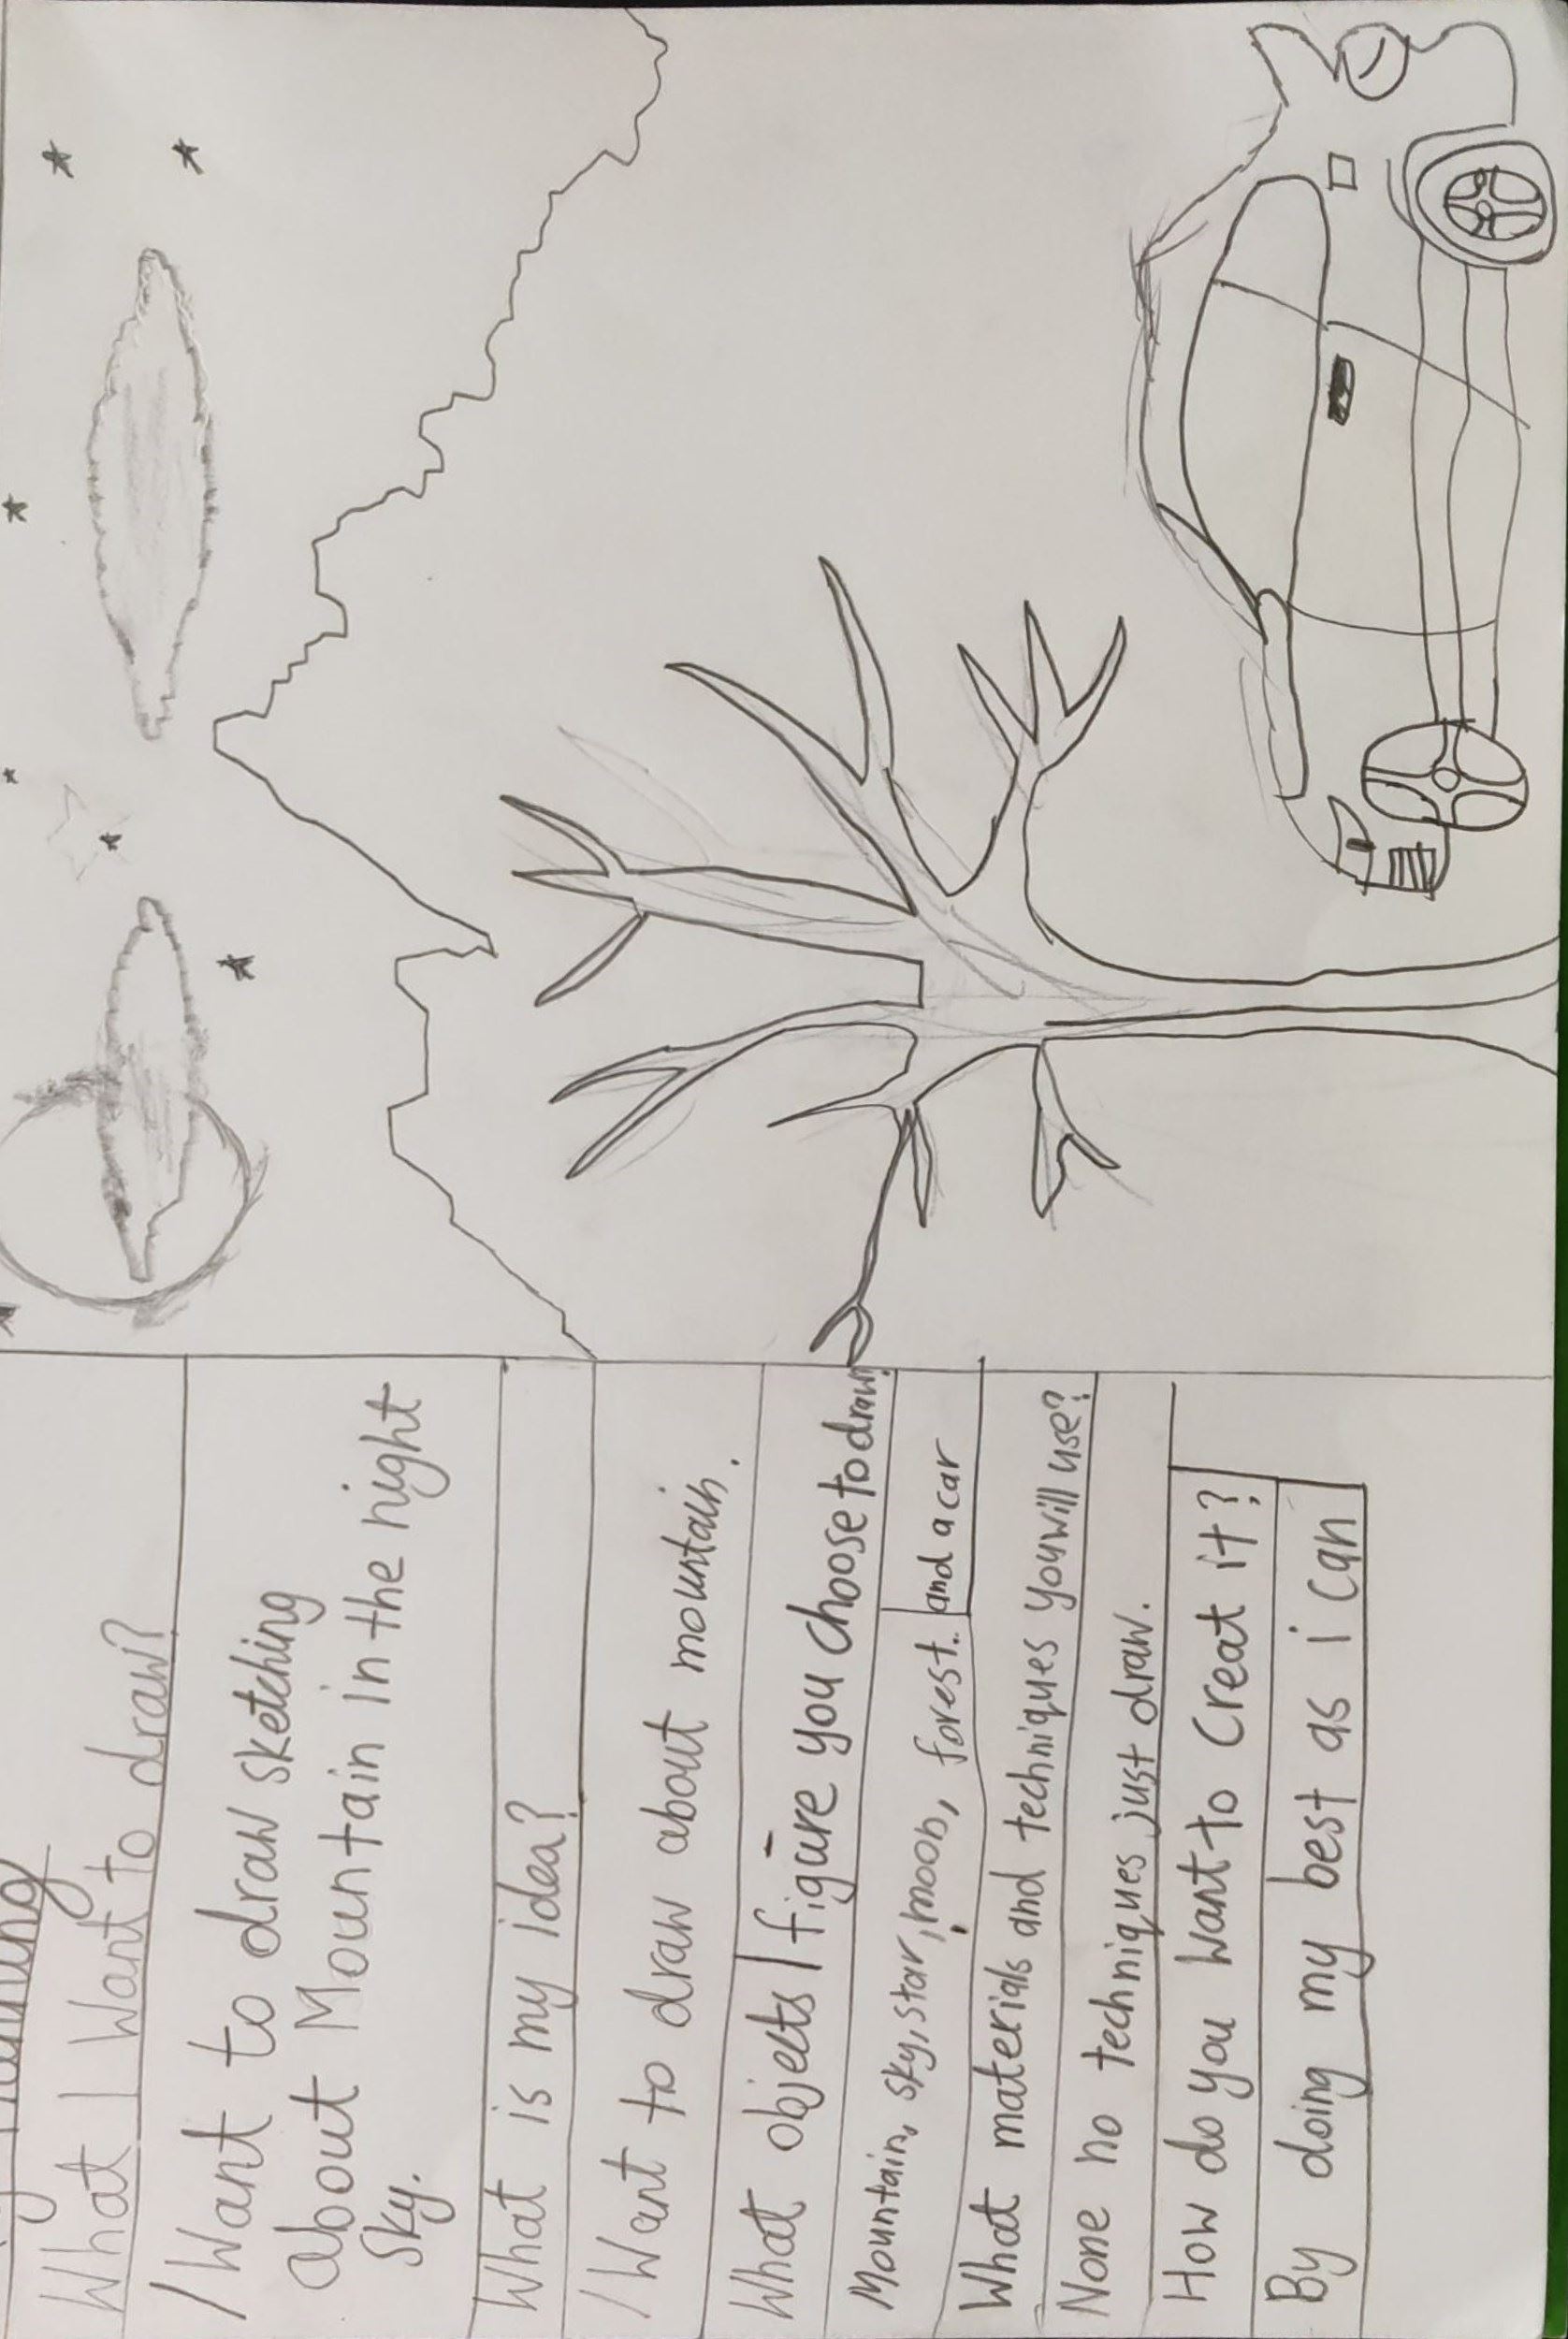 What I want to draw?
I want to draw sketching
about Mountain in the night
sky.
What is my idea?
I want to draw about mountain.
What objects/figure you choose to draw?
Mountain, sky, star, moon, forest. and a car
What materials and techniques you will use?
None no techniques just draw.
How do you want to creat it?
By doing my best as i can